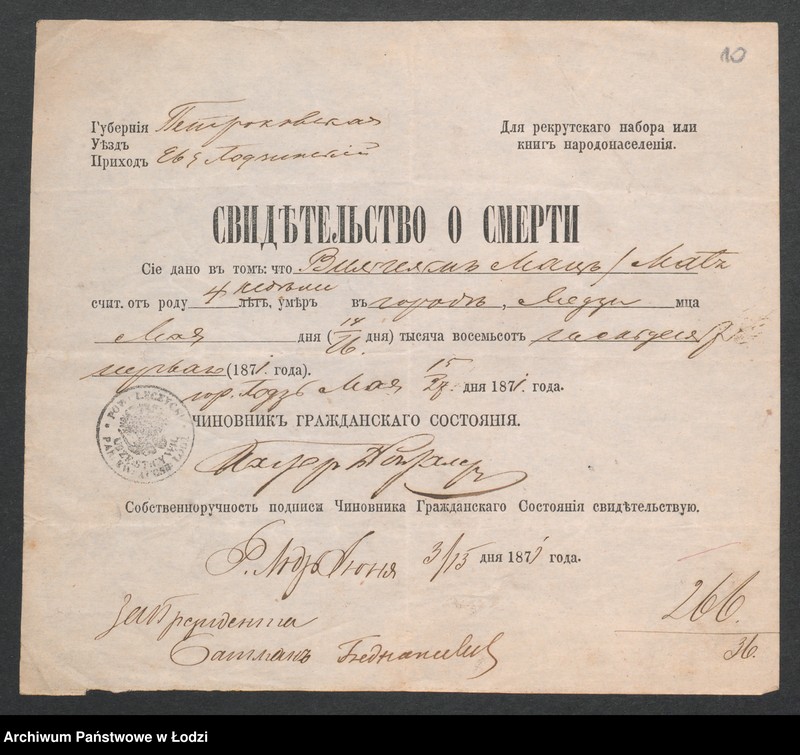 10
Губернія Петроковская
Уѣздъ
Приходъ Лодзинскій
Для рекрутскаго набора или
книгъ народонаселенія.
СВИДѢТЕЛЬСТВО О СМЕРТИ
Сіе дано въ томъ: что Мацъ / Matz
счит. отъ роду 4 недѣли лѣтъ, умеръ въ городѣ, Лодзи мца
Мая дня (14/26 дня) тысяча восемьсотъ
перваго (1871. года).
гор. Лодзь Мая 15/ дня 1871 года.
POW. ŁECZYCKI
ЧИНОВНИКЪ ГРАЖДАНСКАГО СОСТОЯНІЯ.
Собственноручность подписи Чиновника Гражданскаго Состоянія свидѣтельствую.
Г. Лодзь Іюня 3/15 дня 1871 года.
За Президента
266.
36.
Archiwum Państwowe w Łodzi